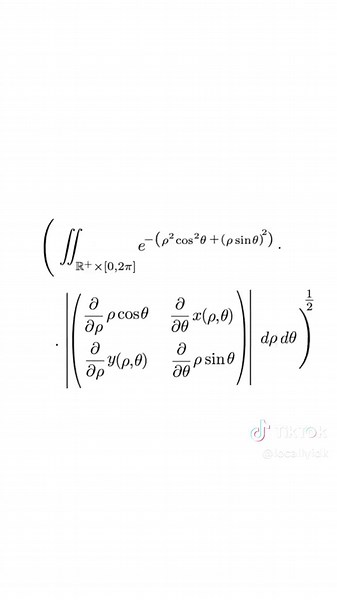 ( ∬_{ℝ⁺×[0,2π]} e^{−(ρ² cos² θ + (ρ sin θ)²)} ·
· | ( ∂/∂ρ ρ cos θ   ∂/∂θ x(ρ,θ)
∂/∂ρ y(ρ,θ)   ∂/∂θ ρ sin θ ) | dρ dθ )^{1/2}
TikTok